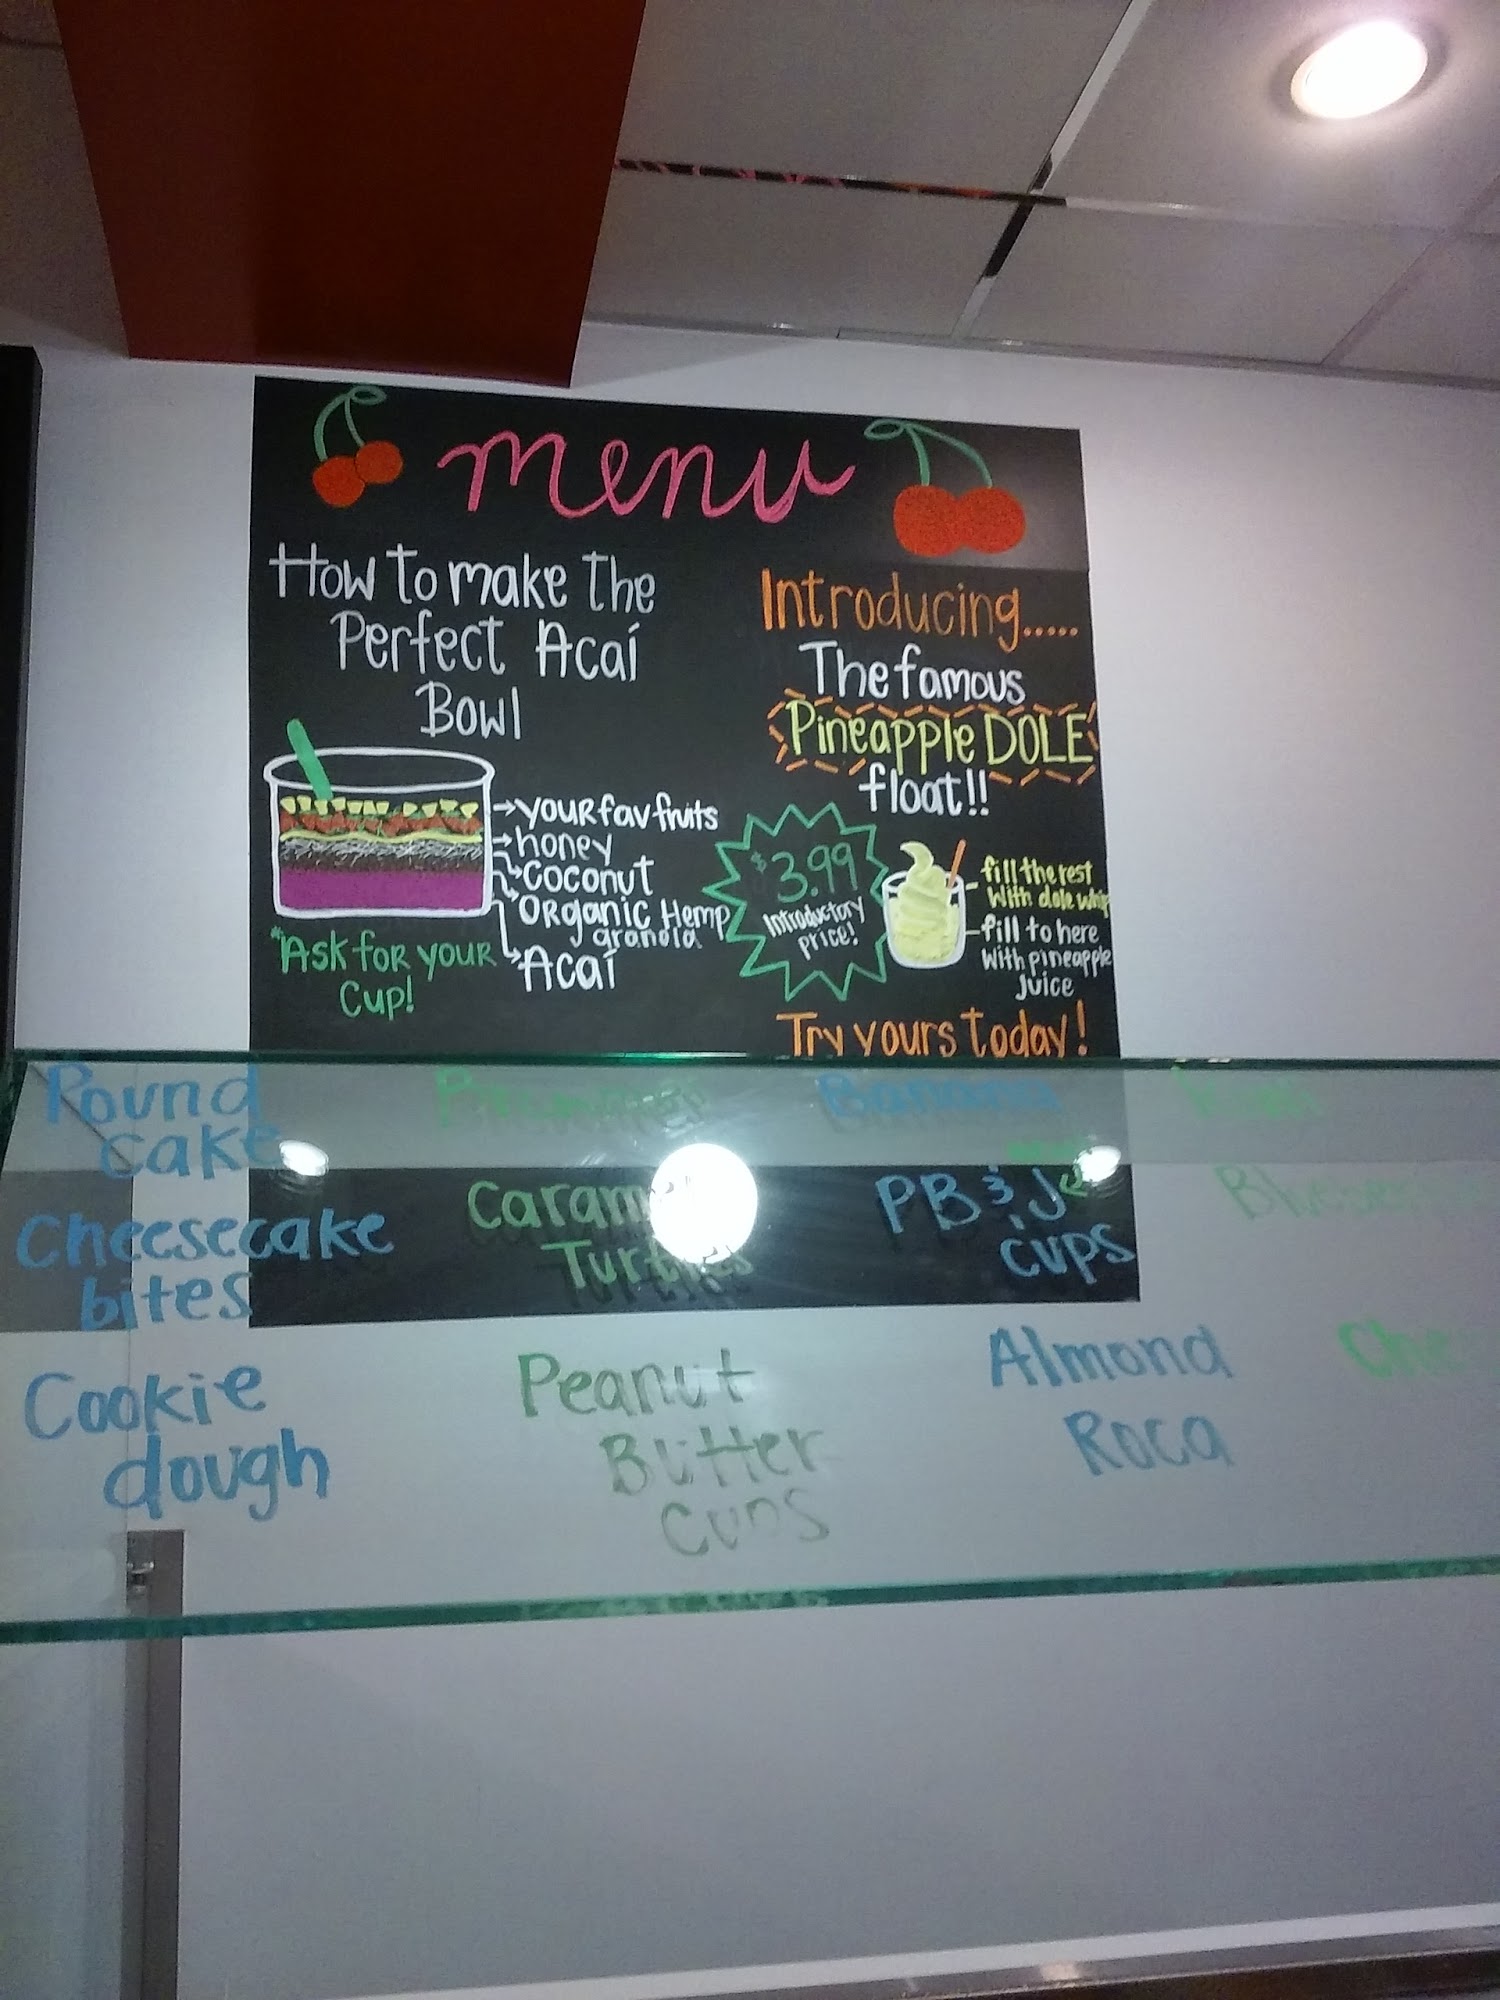 menu
How to make the
Perfect Acaí
Bowl
→ your fav fruits
→ honey
→ coconut
→ organic Hemp
granola
→ Acaí
*Ask for your
Cup!
Introducing.....
The famous
Pineapple DOLE
float!!
$3.99
Introductory
price!
fill the rest
With dole whip
fill to here
With pineapple
Juice
Try yours today!
Pound
cake
Banana
Cheesecake
bites
Caramel
Turtles
PB & J
cups
Cookie
dough
Peanut
Butter
Cups
Almond
Roca